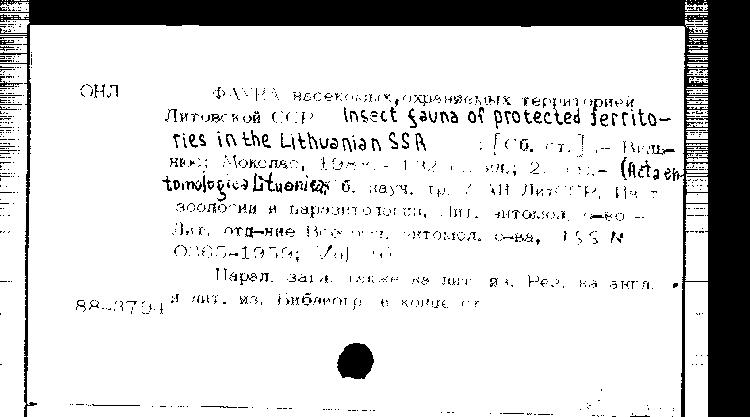 ОНЛ
ФАУНА насекомых, охраняемых территорией
Литовской ССР Insect fauna of protected territo-
ries in the Lithuanian SSR : [Сб. ст.]. - Виль-
нюс; Мокслас, ил.; (Acta en-
tomologica Lituanica; б. науч. тр. / АН ЛитССР, Ин-т
зоологии и паразитологии, Лит. энтомол. о-во -
Лит. отд-ние Всесоюз. энтомол. о-ва, ISSN
0365-1959; Vol.
Парал. загл. также на лит. яз. Рез. на англ.
и лит. яз. Библиогр. в конце ст.
88-3704